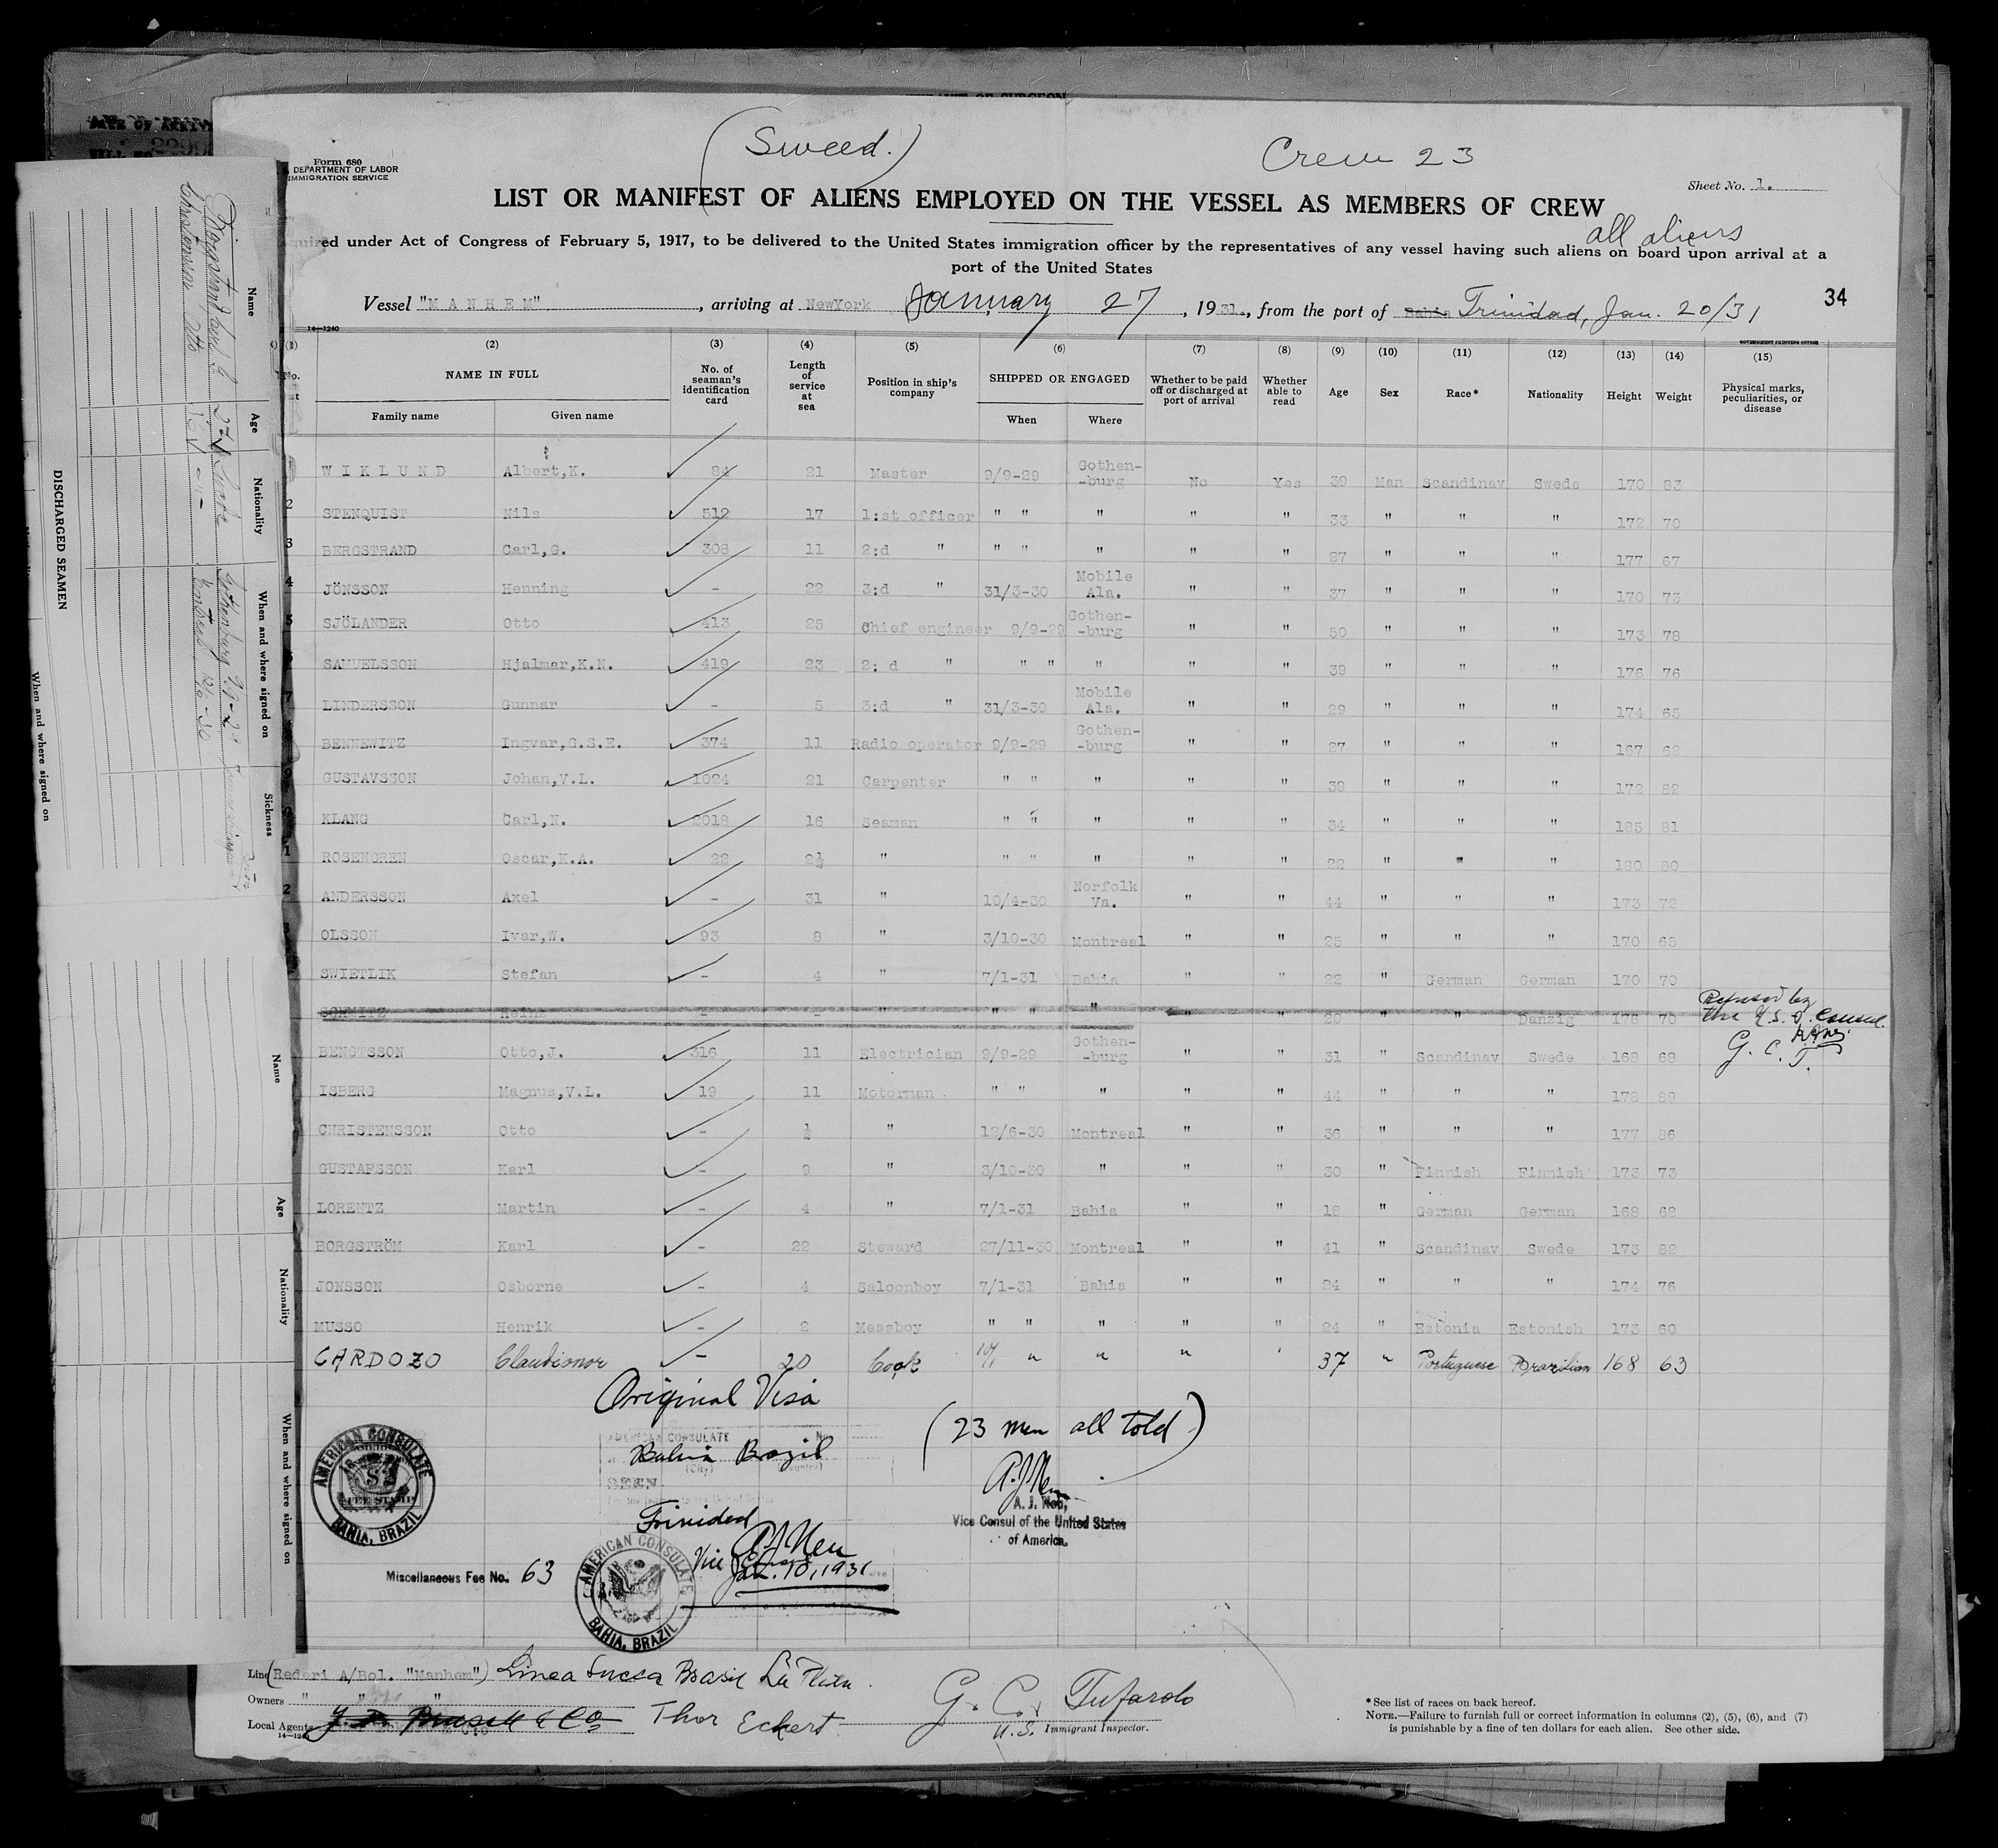 (Sweed.)
Crew 23
Form 680
DEPARTMENT OF LABOR
IMMIGRATION SERVICE
Sheet No. 1.
LIST OR MANIFEST OF ALIENS EMPLOYED ON THE VESSEL AS MEMBERS OF CREW
all aliens
under Act of Congress of February 5, 1917, to be delivered to the United States immigration officer by the representatives of any vessel having such aliens on board upon arrival at a
port of the United States
Vessel "MANHEM", arriving at NewYork January 27, 1931., from the port of Bahia Trinidad, Jan. 20/31
34
14—1240
GOVERNMENT PRINTING OFFICE
(1) (2) (3) (4) (5) (6) (7) (8) (9) (10) (11) (12) (13) (14) (15)
NAME IN FULL
Family name Given name
No. of seaman's identification card
Length of service at sea
Position in ship's company
SHIPPED OR ENGAGED
When Where
Whether to be paid off or discharged at port of arrival
Whether able to read
Age Sex Race* Nationality Height Weight
Physical marks, peculiarities, or disease
WIKLUND Albert,K. 84 21 Master 9/9-29 Gothen--burg No Yes 39 Man Scandinav Swede 170 83
2 STENQUIST Nils 512 17 1:st officer " " " " " 33 " " " 172 70
3 BERGSTRAND Carl,G. 308 11 2:d " " " " " " 27 " " " 177 67
4 JÖNSSON Henning - 22 3:d " 31/3-30 Mobile Ala. " " 37 " " " 170 73
5 SJÖLANDER Otto 413 25 Chief engineer 9/9-29 Gothen--burg " " 50 " " " 173 78
SAMUELSSON Hjalmar,K.N. 419 23 2: d " " " " " " 39 " " " 176 76
7 LINDERSSON Gunnar - 5 3:d " 31/3-30 Mobile Ala. " " 29 " " " 174 65
BENNEWITZ Ingvar,G.S.E. 374 11 Radio operator 9/9-29 Gothen--burg " " 27 " " " 167 62
GUSTAVSSON Johan,V.L. 1024 21 Carpenter " " " " " 39 " " " 172 82
KLANG Carl,N. 2018 16 Seaman " " " " " 34 " " " 185 81
1 ROSENGREN Oscar,K.A. 22 2½ " " " " " " 22 " " " 180 80
2 ANDERSSON Axel - 31 " 10/4-30 Norfolk Va. " " 44 " " " 173 72
OLSSON Ivar,W. 93 8 " 3/10-30 Montreal " " 25 " " " 170 65
SWIETLIK Stefan - 4 " 7/1-31 Bahia " " 22 " German German 170 70
SCHMITZ Heinz - - " " " " " " 20 " " Danzig 176 70 Refused by the U.S. Consul.
G. C. T.
BENGTSSON Otto,J. 316 11 Electrician 9/9-29 Gothen--burg " " 31 " Scandinav Swede 168 68
ISBERG Magnus,V.L. 19 11 Motorman " " " " " 44 " " " 178 89
CHRISTENSSON Otto - ½ " 12/6-30 Montreal " " 36 " " " 177 86
GUSTAFSSON Karl - 9 " 3/10-30 " " " 30 " Finnish Finnish 173 73
LORENTZ Martin - 4 " 7/1-31 Bahia " " 18 " German German 168 68
BORGSTRÖM Karl - 22 Steward 27/11-30 Montreal " " 41 " Scandinav Swede 173 82
JONSSON Osborne - 4 Saloonboy 7/1-31 Bahia " " 24 " " " 174 76
MUSSO Henrik - 2 Messboy " " " " " 24 " Estonia Estonish 173 60
CARDOZO Claudionor - 20 Cook 10/1 " " " ' 37 " Portuguese Brazilian 168 63
Original Visa
AMERICAN CONSULATE No.
Bahia Brazil
(City) (Country)
SEEN
Trinidad
A J Neu
Vice Consul
Jan. 10, 1931
(23 men all told)
A. J. Neu,
Vice Consul of the United States
of America.
AMERICAN CONSULATE
$2
FEE STAMP
BAHIA, BRAZIL
Miscellaneous Fee No. 63
AMERICAN CONSULATE
BAHIA, BRAZIL
Line (Rederi A/Bol. "Manhem") Linea Sueca Brasil La Plata.
Owners " " "
Local Agents Thor Eckert
14—1240
G. C. Tufarolo
U.S. Immigrant Inspector.
*See list of races on back hereof.
NOTE.—Failure to furnish full or correct information in columns (2), (5), (6), and (7)
is punishable by a fine of ten dollars for each alien. See other side.
DISCHARGED SEAMEN
Name Age Nationality When and where signed on Sickness
Christensson Otto
Gothenburg 9/9-29
Montreal 12/6-30
When and where signed on
Name Age Nationality When and where signed on